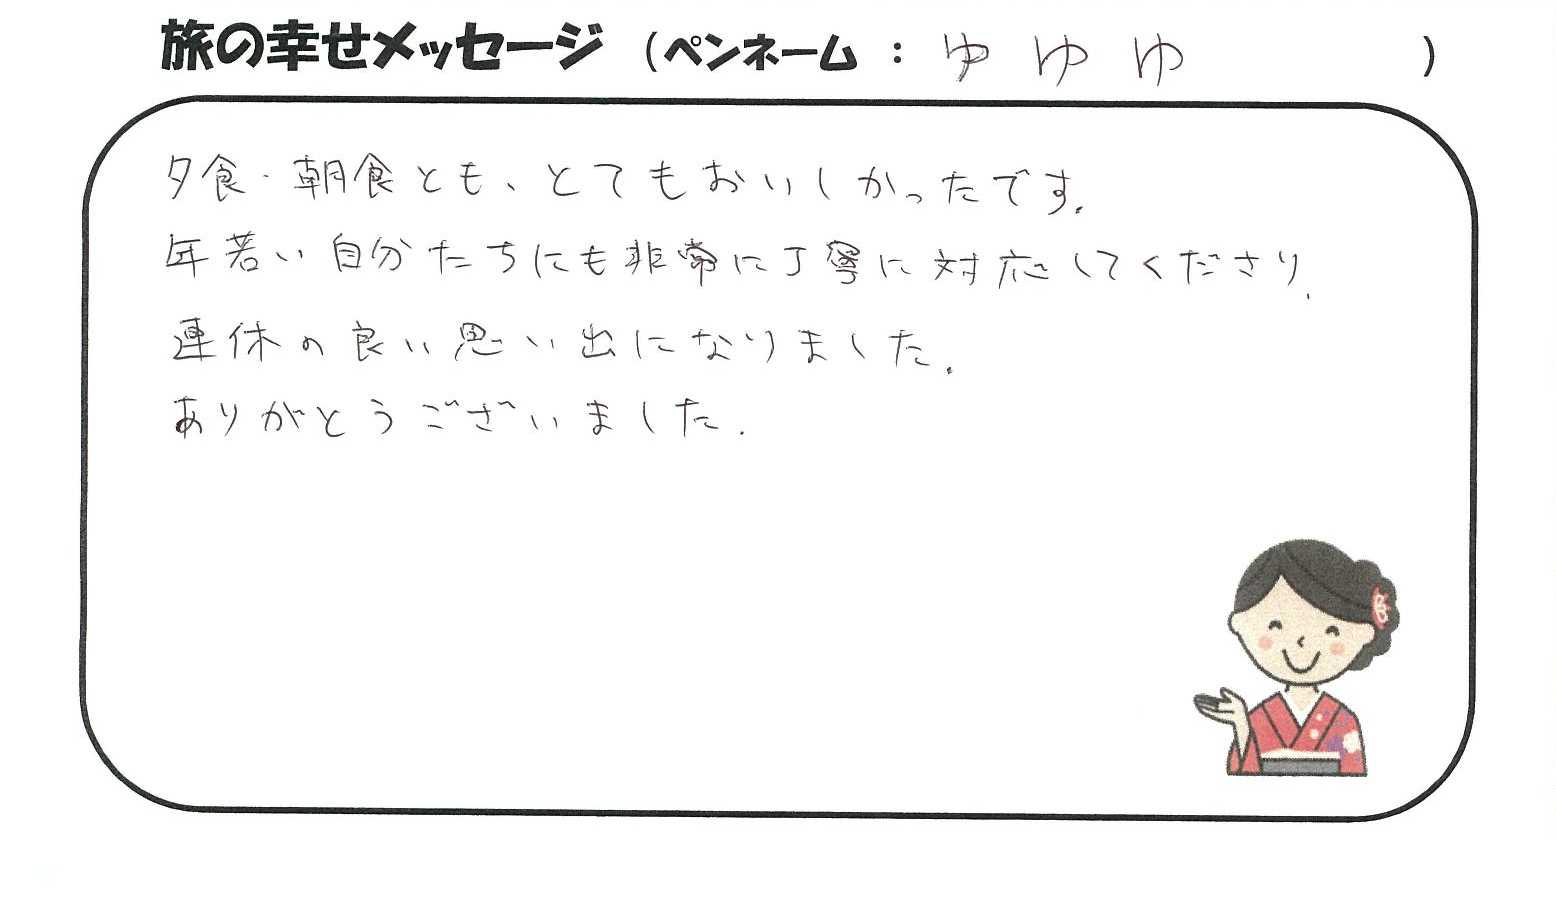 旅の幸せメッセージ （ペンネーム ： ゆゆゆ ）
夕食・朝食とも、とてもおいしかったです。
年若い自分たちにも非常に丁寧に対応してくださり、
連休の良い思い出になりました。
ありがとうございました。